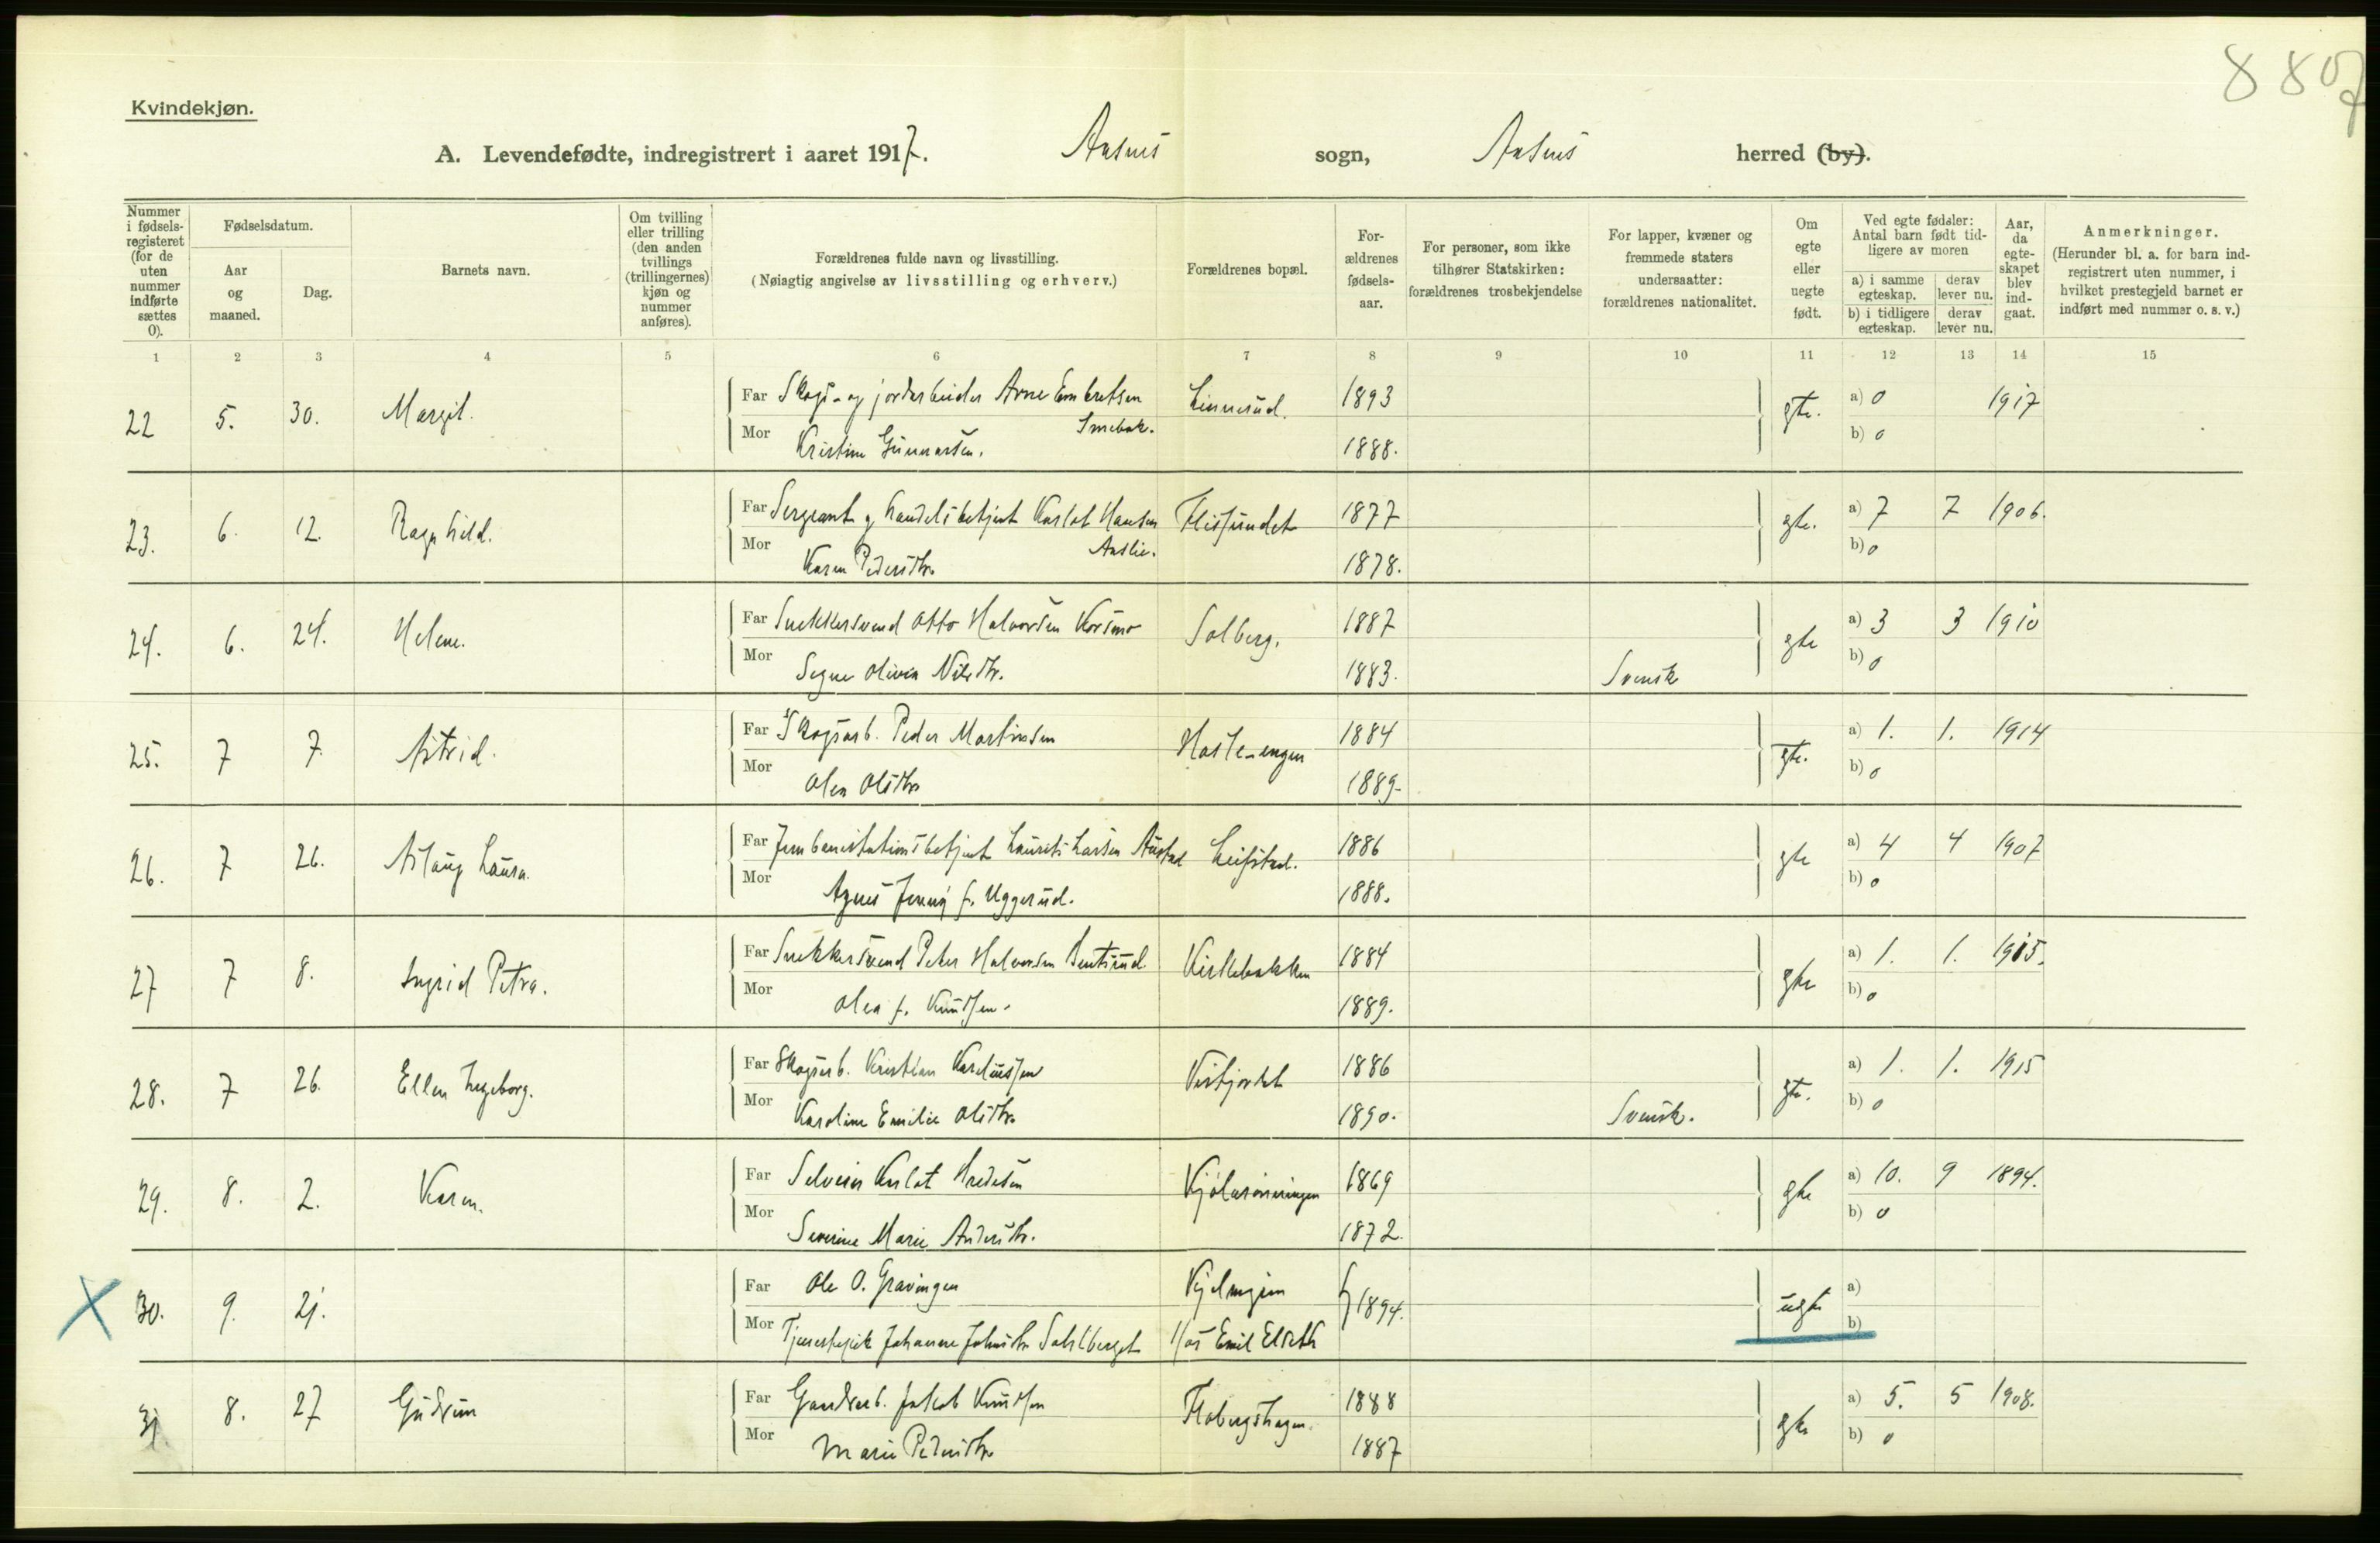 8807
Kvindekjøn.
A. Levendefødte, indregistrert i aaret 1917. Aasnes sogn, Aasnes herred (by).
Nummer i fødsels-registeret (for de uten nummer indførte sættes 0).
Fødselsdatum.
Aar og maaned.
Dag.
Barnets navn.
Om tvilling eller trilling (den anden tvillings (trillingernes) kjøn og nummer anføres).
Forældrenes fulde navn og livsstilling.
(Nøiagtig angivelse av livsstilling og erhverv.)
Forældrenes bopæl.
For-ældrenes fødsels-aar.
For personer, som ikke tilhører Statskirken: forældrenes trosbekjendelse
For lapper, kvæner og fremmede staters undersaatter: forældrenes nationalitet.
Om egte eller uegte født.
Ved egte fødsler: Antal barn født tid-ligere av moren
a) i samme egteskap. derav lever nu.
b) i tidligere egteskap. derav lever nu.
Aar, da egte-skapet blev ind-gaat.
Anmerkninger.
(Herunder bl. a. for barn ind-registrert uten nummer, i hvilket prestegjeld barnet er indført med nummer o. s. v.)
1 2 3 4 5 6 7 8 9 10 11 12 13 14 15
22 5. 30. Margit. Far Skogs- og jordarbeider Arne Embretsen Linnerud. 1893 gte. a) 0 1917
Smebak.
Mor Kristine Gunnarsen. 1888. b) 0
23. 6. 12. Ragnhild. Far Sergeant g handelsbetjent Karlot Hansen Flisundet 1877 gte. a) 7 7 1906.
Aaslie.
Mor Karen Pedersdtr. 1878. b) 0
24. 6. 24. Helene. Far Snekkersvend Otto Halvorsen Korsmo Solberg. 1887 gte a) 3 3 1910
Mor Signe Olivia Nilsdtr. 1883. Svensk b) 0
25. 7 7. Astrid. Far Skogsarb. Peder Martinsen Hasle-engen 1884 gte. a) 1. 1. 1914
Mor Olea Olsdtr 1889. b) 0
26. 7 26. Aslaug Laura. Far Jernbanestationsbetjent Laurits Larsen Austad Leifstad. 1886 gte a) 4 4 1907
Mor Agnes Jenny f. Uggerud. 1888. b) 0
27 7 8. Ingrid Petra. Far Snekkersvend Peter Halvorsen Berntsrud. Kirkebakken 1884 gte a) 1. 1. 1915.
Mor Olea f. Knudsen. 1889. b) 0
28. 7 26. Ellen Ingeborg. Far Skogsarb. Kristian Karelius​sen 1886 gte. a) 1. 1. 1915
Mor Karoline Emilie Olsdtr. 1890. Svensk. b) 0
29. 8. 2. Karen. Far Selveier Karlot Hredesen 1869 gte a) 10. 9 1894.
Mor Severine Marie Andersdtr. 1872. b) 0
30. 9. 21. Far Ole O. Gravingen 1894. uegte a)
Mor Tjenestepik Johanne Johnsdtr Sahlberget Hos Emil Elseth b)
31. 8. 27 Gudrun Far Gaardsarb. Jakob Knudsen Flobergshagen. 1888 gte a) 5. 5 1908.
Mor Marie Pedersdtr. 1887 b) 0